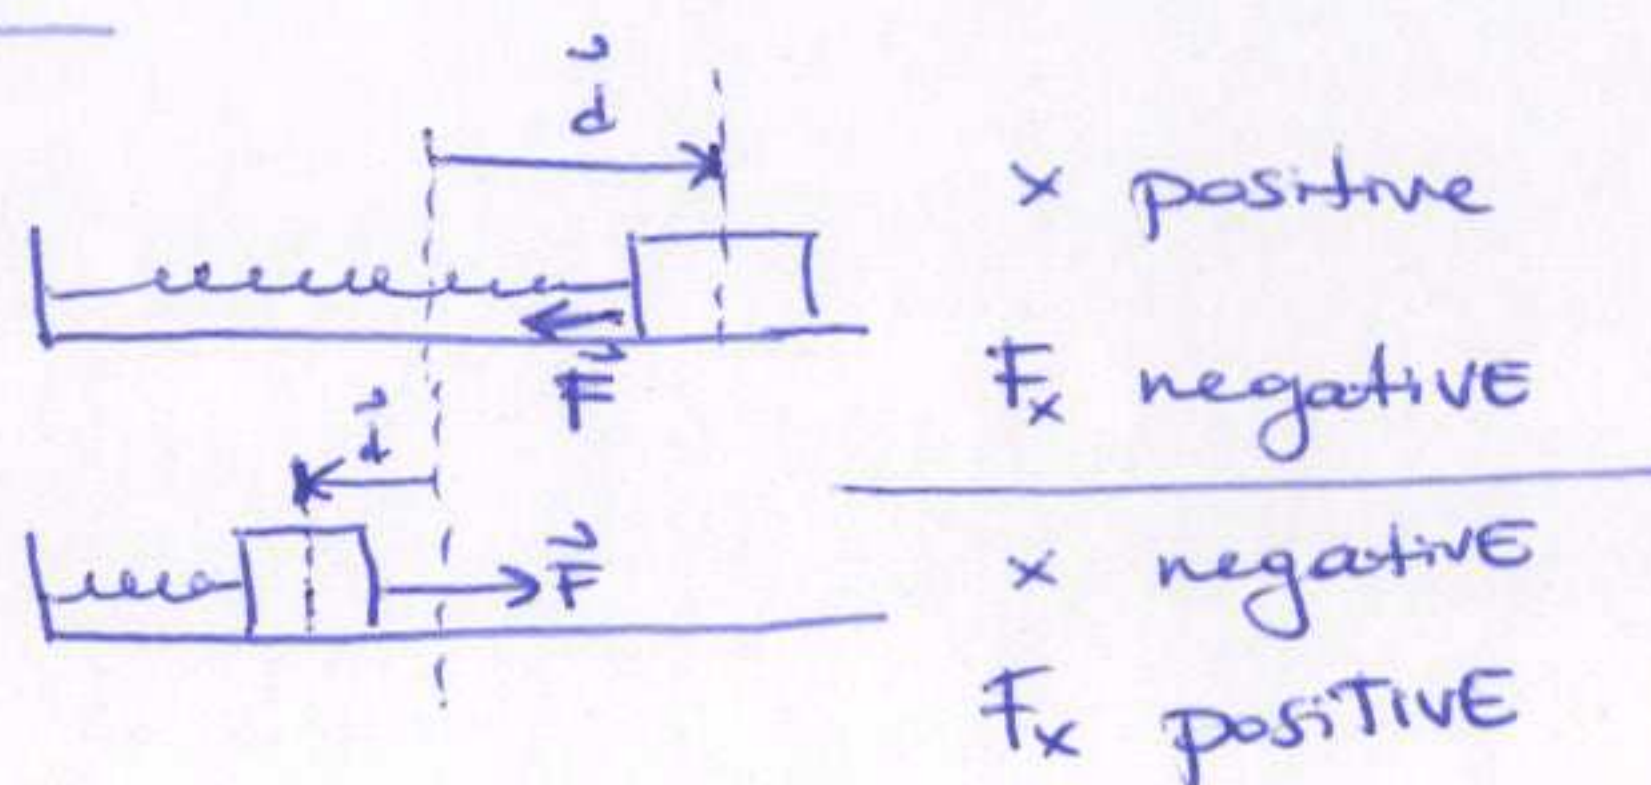 d⃗
x positive
F⃗
Fx negativE
d⃗
F⃗
x negativE
Fx posiTivE